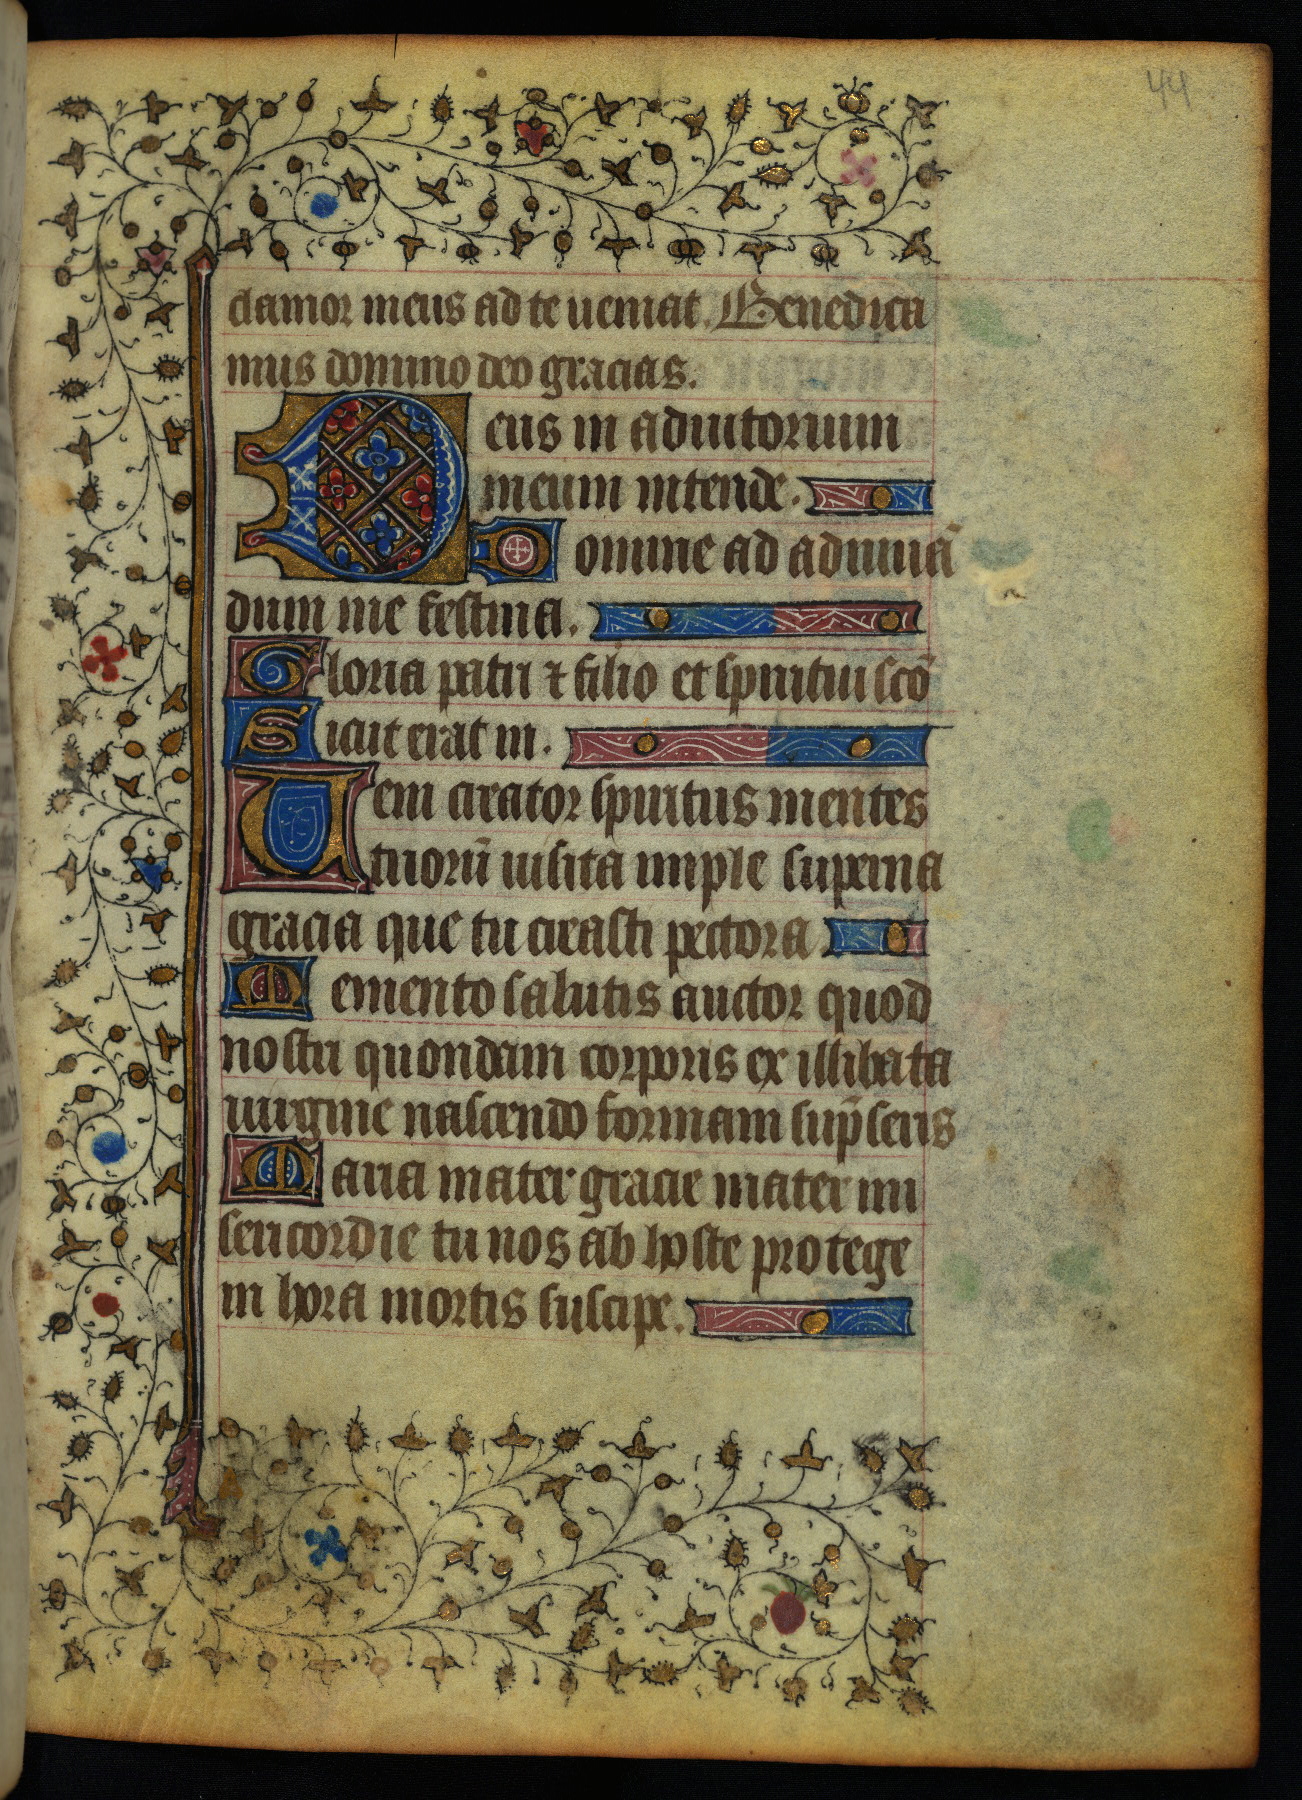 44
clamor meus ad te ueniat. Benedica
mus domino deo gracias.
Deus in adiutorium
meum intende.
Domine ad adiuuā
dum me festina.
Gloria patri ⁊ filio et spiritui scō
Sicut erat in.
Ueni creator spiritus mentes
tuorū uisita imple superna
gracia que tu creasti pectora
Memento salutis auctor quod
nostri quondam corporis ex illibata
uirgine nascendo formam sūpseris
Maria mater gracie mater mi
sericordie tu nos ab hoste protege
in hora mortis suscipe.